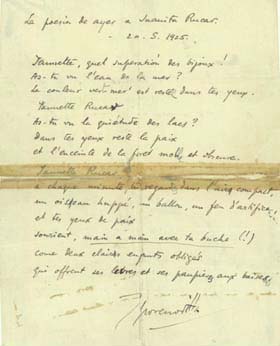 La poesia de ayer a Juanita Rucar.
- 20. S. 1925.
Jeannette, quel superation des bijoux!
As-tu vu l'eau de la mer?
La couleur vert-mer est resté dans tes yeux.
Jeannette Rucar
As-tu vu la quiétude des lacs?
Dans tes yeux reste la paix
et l'enceinte de la forêt molle et obscure.
Jeannette Rucar
a chaque minute, tu regardes dans l'air compact,
un oiseau huppé, un ballon, un feu d'artifice,
et tes yeux de paix
sourient, main a main avec ta buche (!)
come deux clairs enfants obligés
qui offrent ses levres et ses paupières aux baisers